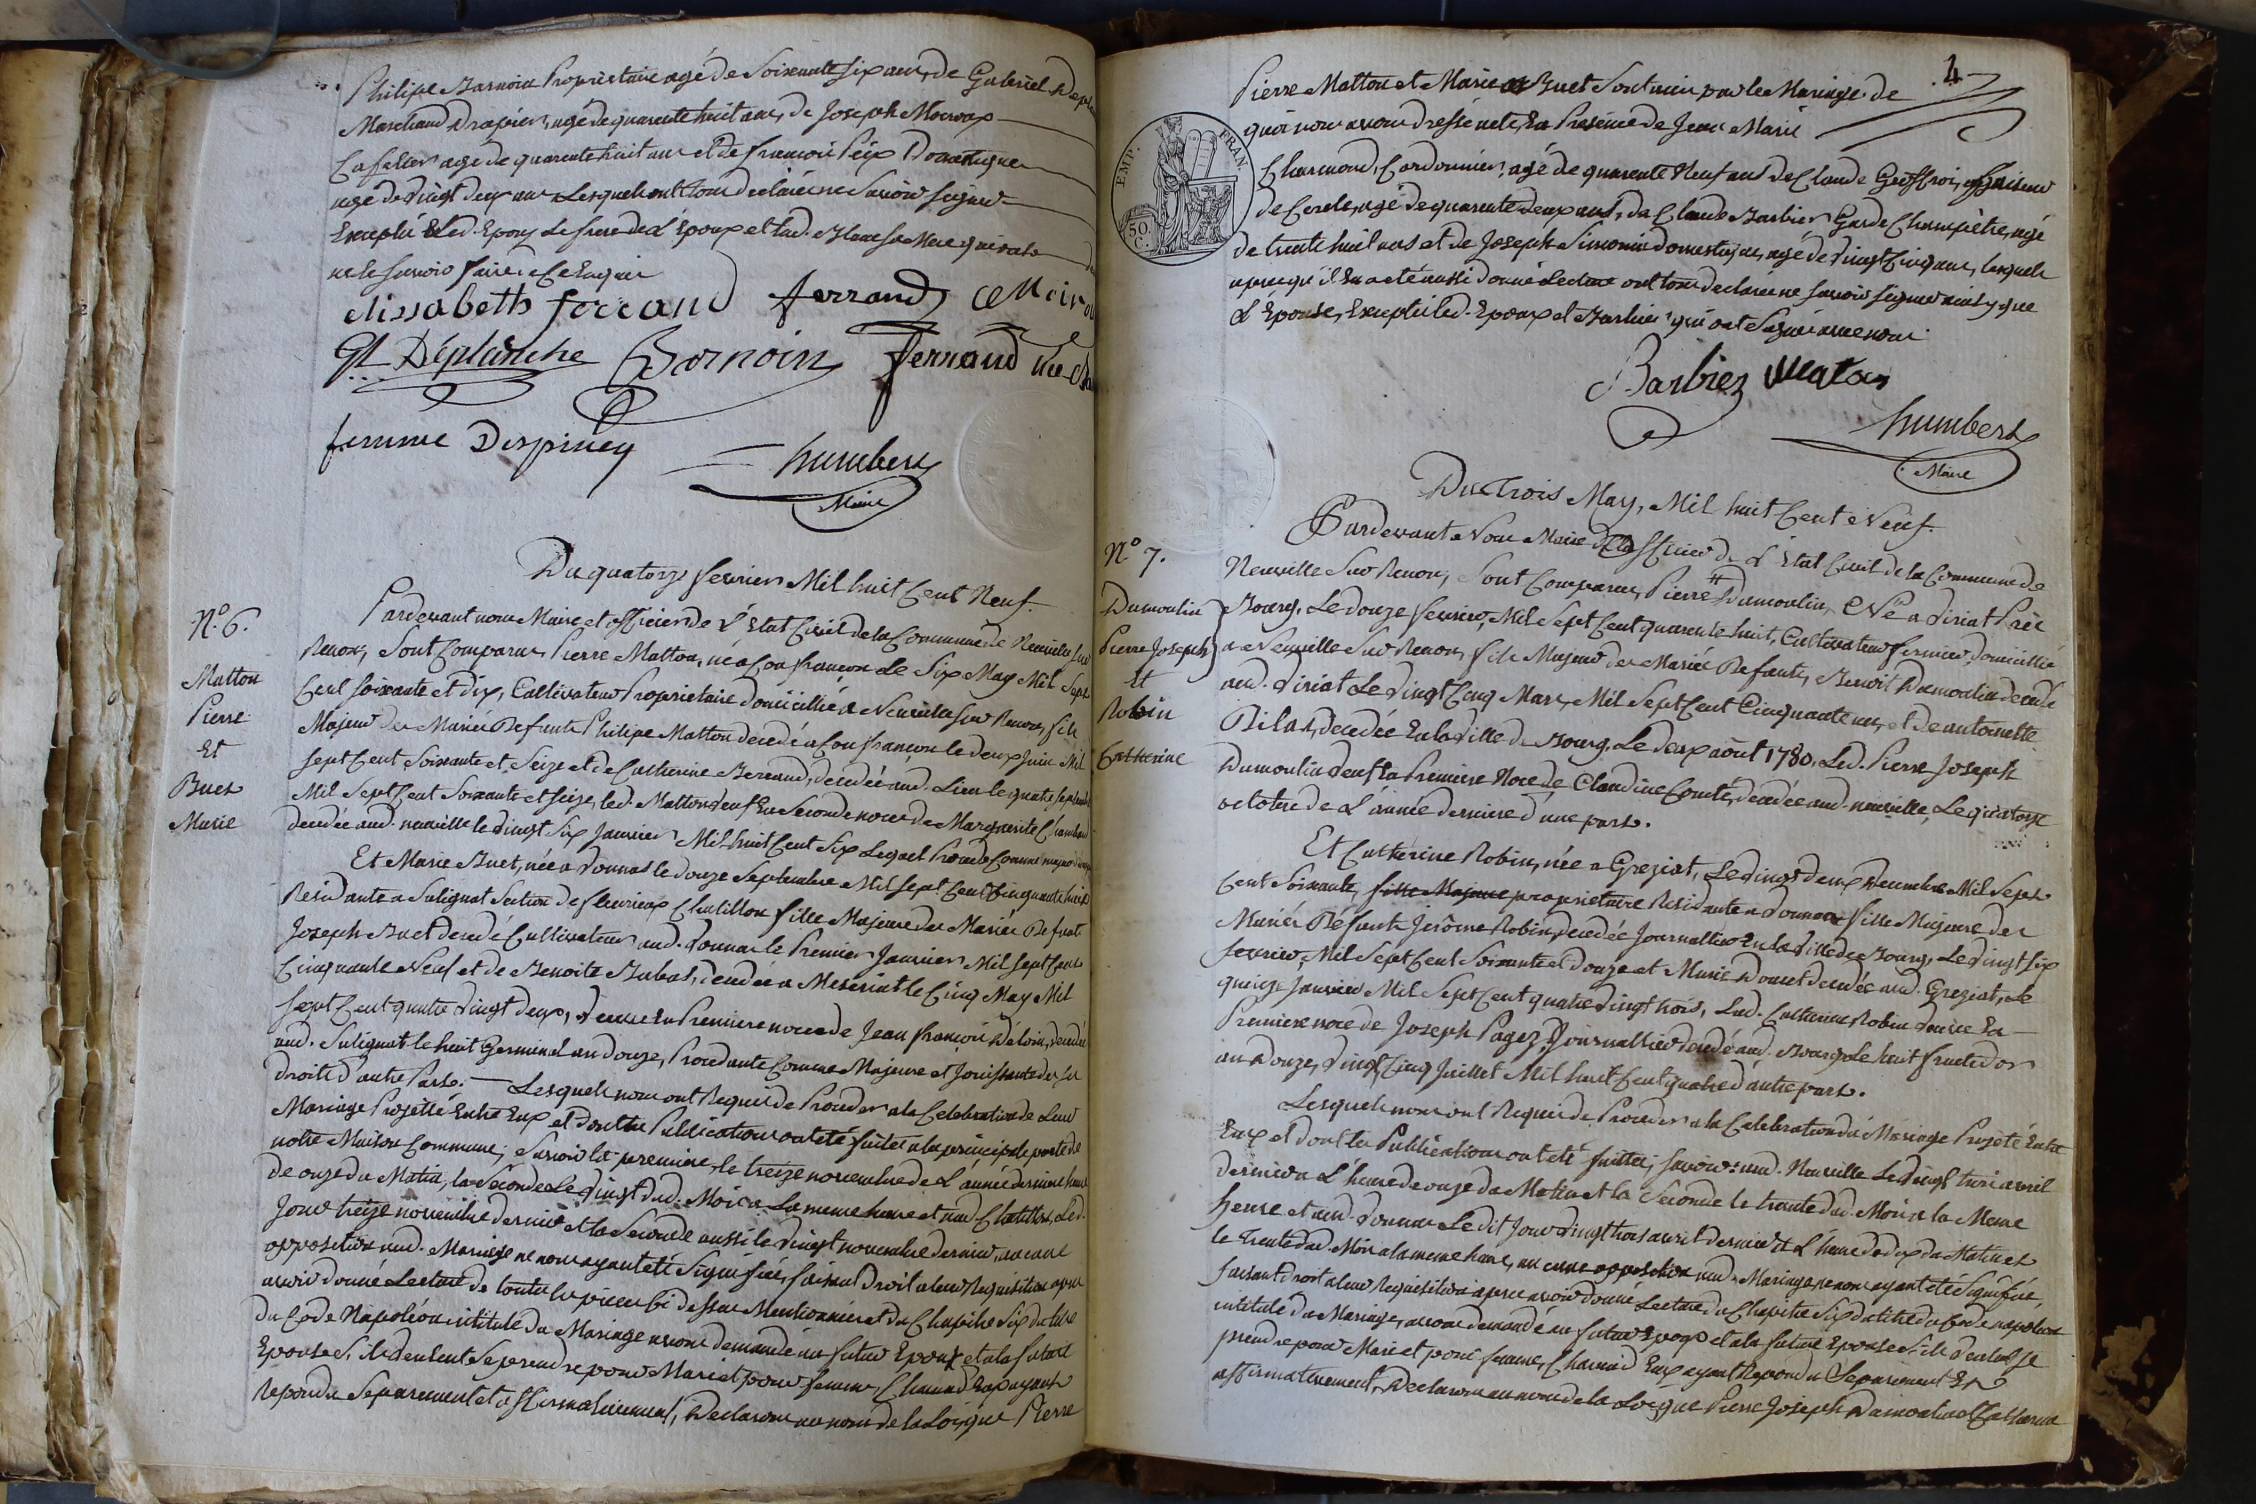 Philipe Barnoin Propriétaire agé de Soixante six ans, de Gabriel
Marchand Drapier, agé de quarente huit ans, de Joseph
Cafetier agé de quarente huit ans et de françois Domestique
agé de vingt deux ans Lesquels ont tous déclaré ne Savoir signer
Excepté Led. Epoux Le frere de L'Epoux et
ne le Savoir faire de ce Enquis
elissabeth ferrand ferrand
Gl Déplanche Bornoin ferrand
femme Despiney humbert
Maire
Du quatorze fevrier Mil huit Cent Neuf.
N.° 6.
Matton
Pierre
Et
Buet
Marie
Pardevant nous Maire et officier de L'Etat Civil de la Commune de Neuville Sur
Renon, Sont Comparus Pierre Matton, né a Confrançon Le Six May Mil Sept
Cent Soixante et dix, Cultivateur Propriétaire domicillié a Neuville Sur Renon, fils
Majeur des Mariés Défunts Philipe Matton décédé a Confrançon le deux Juin Mil
Sept Cent Soixante et Seize et de Catherine Bereaud, décédée aud. Lieu le quatre Septembre
Mil Sept Cent Soixante et Seize, led. Matton veuf En Séconde noce de Marguerite
décédée aud. neuville le vingt Six Janvier Mil huit Cent Six Lequel Procede Comme majeur
Et Marie Buet, née a Vonnas le douze Septembre Mil Sept Cent Cinquante huit
Résidante a Sulignat Section de fleurieux Chatillon fille Majeure des Mariés Defunts
Joseph Buet décédé Cultivateur aud. Vonnas le Premier Janvier Mil Sept Cent
Cinquante Neuf et de Benoite Dubat, décédée a Meseriat le Cinq May Mil
Sept Cent quatre vingt deux, veuve En Premiere noce de Jean françois Déloin, décédé
aud. Sulignat le huit Germinal an douze, Procedante Comme Majeure et Jouissante de Ses
droits d'autre Part. — Lesquels nous ont Requis de Proceder a la Celebration de Leur
Mariage Projetté Entre Eux et dont les Publications ont été faites a la principale porte de
notre Maison Commune; Savoir la premiere le treize novembre de L'année derniere heure
de onze du Matin, la Séconde Le vingt dud. Mois a La meme heure et aud. Chatillon, Led.
Jour treize novembre dernier et la Seconde aussi le vingt novembre dernier, aucune
opposition aud. Mariage ne nous ayant été Signifiée, faisant droit a leur Requisition apres
avoir donné Lecture de toutes les pieces Ci dessus Mentionnées et du Chapitre Six du titre
du Code Napoléon intitulé du Mariage avons demandé au futur Epoux et a la future
Epouse S'ils veulent Se prendre pour Mari et pour femme, Chacun d'Eux ayant
Repondu Separement et affirmativement, Declarons au nom de la Loi que Pierre
4
Pierre Matton et Marie Buet Sont unis par le Mariage. de
quoi nous avons dressé acte, En Presence de Jean Marie
Charmond, Cordonnier, agé de quarente Neuf ans de Claude Geoffroi, faiseur
de Cercle, agé de quarente deux ans, de Claude Barbier Garde Champêtre, agé
de trente huit ans et de Joseph Simonin domestique, agé de vingt Cinq ans, lesquels
apres qu'il En a été aussi donné Lecture ont tous declaré ne Savoir signer ainsy que
L'Epouse, Excepté led. Epoux et Barbier qui ont Signé avec nous
EMP. FRAN.
50. C.
Barbier Maton
humbert
Maire
Du Trois May, Mil huit Cent Neuf.
N° 7.
Dumoulin
Pierre Joseph
Et
Robin
Catherine
Pardevant Nous Maire officier de L'Etat Civil de la Commune de
Neuville Sur Renon, Sont Comparus, Pierre # Dumoulin, Né a Viriat Près
Bourg, Le douze fevrier, Mil Sept Cent quarente huit, Cultivateur fermier, domicillié
a Neuville Sur Renon, fils Majeur des Mariés Defunts, Benoit Dumoulin décédé
aud. Viriat Le vingt Cinq Mars, Mil Sept Cent Cinquante un, et de antoinette
Pilat, décédée En la Ville de Bourg, Le deux août 1780, Led. Pierre Joseph
Dumoulin veuf En Premiere Noce de Claudine Comte, décédée aud. neuville, Le quatorze
octobre de L'année derniere d'une part.
Et Catherine Robin, née a Greziat, Le vingt deux Decembre Mil Sept
Cent Soixante, fille Majeure propriétaire Résidante a Vonnas fille Majeure des
Mariés Défunts Jerôme Robin, décédé Journallier En la Ville de Bourg, Le vingt Six
fevrier, Mil Sept Cent Soixante et Douze et Marie Douset décédée aud. Greziat, Le
quinze Janvier Mil Sept Cent quatre vingt trois, Lad. Catherine Robin veuve En —
Premiere noce de Joseph Pagez, Journallier décédé aud. Bourg Le huit fructidor
an Douze, vingt Cinq Juillet Mil huit Cent quatre d'autre part.
Lesquels nous ont Requis de Proceder a la Celebration du Mariage Projeté Entre
Eux et dont les Publications ont été faittes, Savoir: aud. Neuville Le vingt trois avril
dernier a L'heure de onze du Matin et la Seconde le trente dud. Mois a la Meme
heure et aud. Vonnas Le dit Jour vingt trois avril dernier a L'heure de dix du Matin et
le Trente dud. Mois a la meme heure, aucune opposition aud. Mariage, ne nous ayant été Signifiée,
faisant droit a leur Requisition apres avoir donné Lecture du Chapitre Six du titre du Code napoleon
intitulé du Mariage, avons demandé au futur Epoux et a la future Epouse S'ils veulent Se
prendre pour Mari et pour femme, Chacun d'Eux ayant Repondu Separement Et
affirmativement, Declarons au nom de la Loi que Pierre Joseph Dumoulin et Catherine